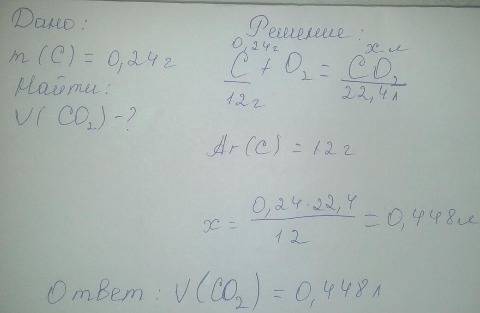 Дано:
m(C) = 0,24 г
Найти:
V(CO₂) - ?
Решение:
0,24 г x л
C + O₂ = CO₂
12 г 22,4 л
Ar(C) = 12 г
x = 0,24·22,4 / 12 = 0,448 л
Ответ: V(CO₂) = 0,448 л